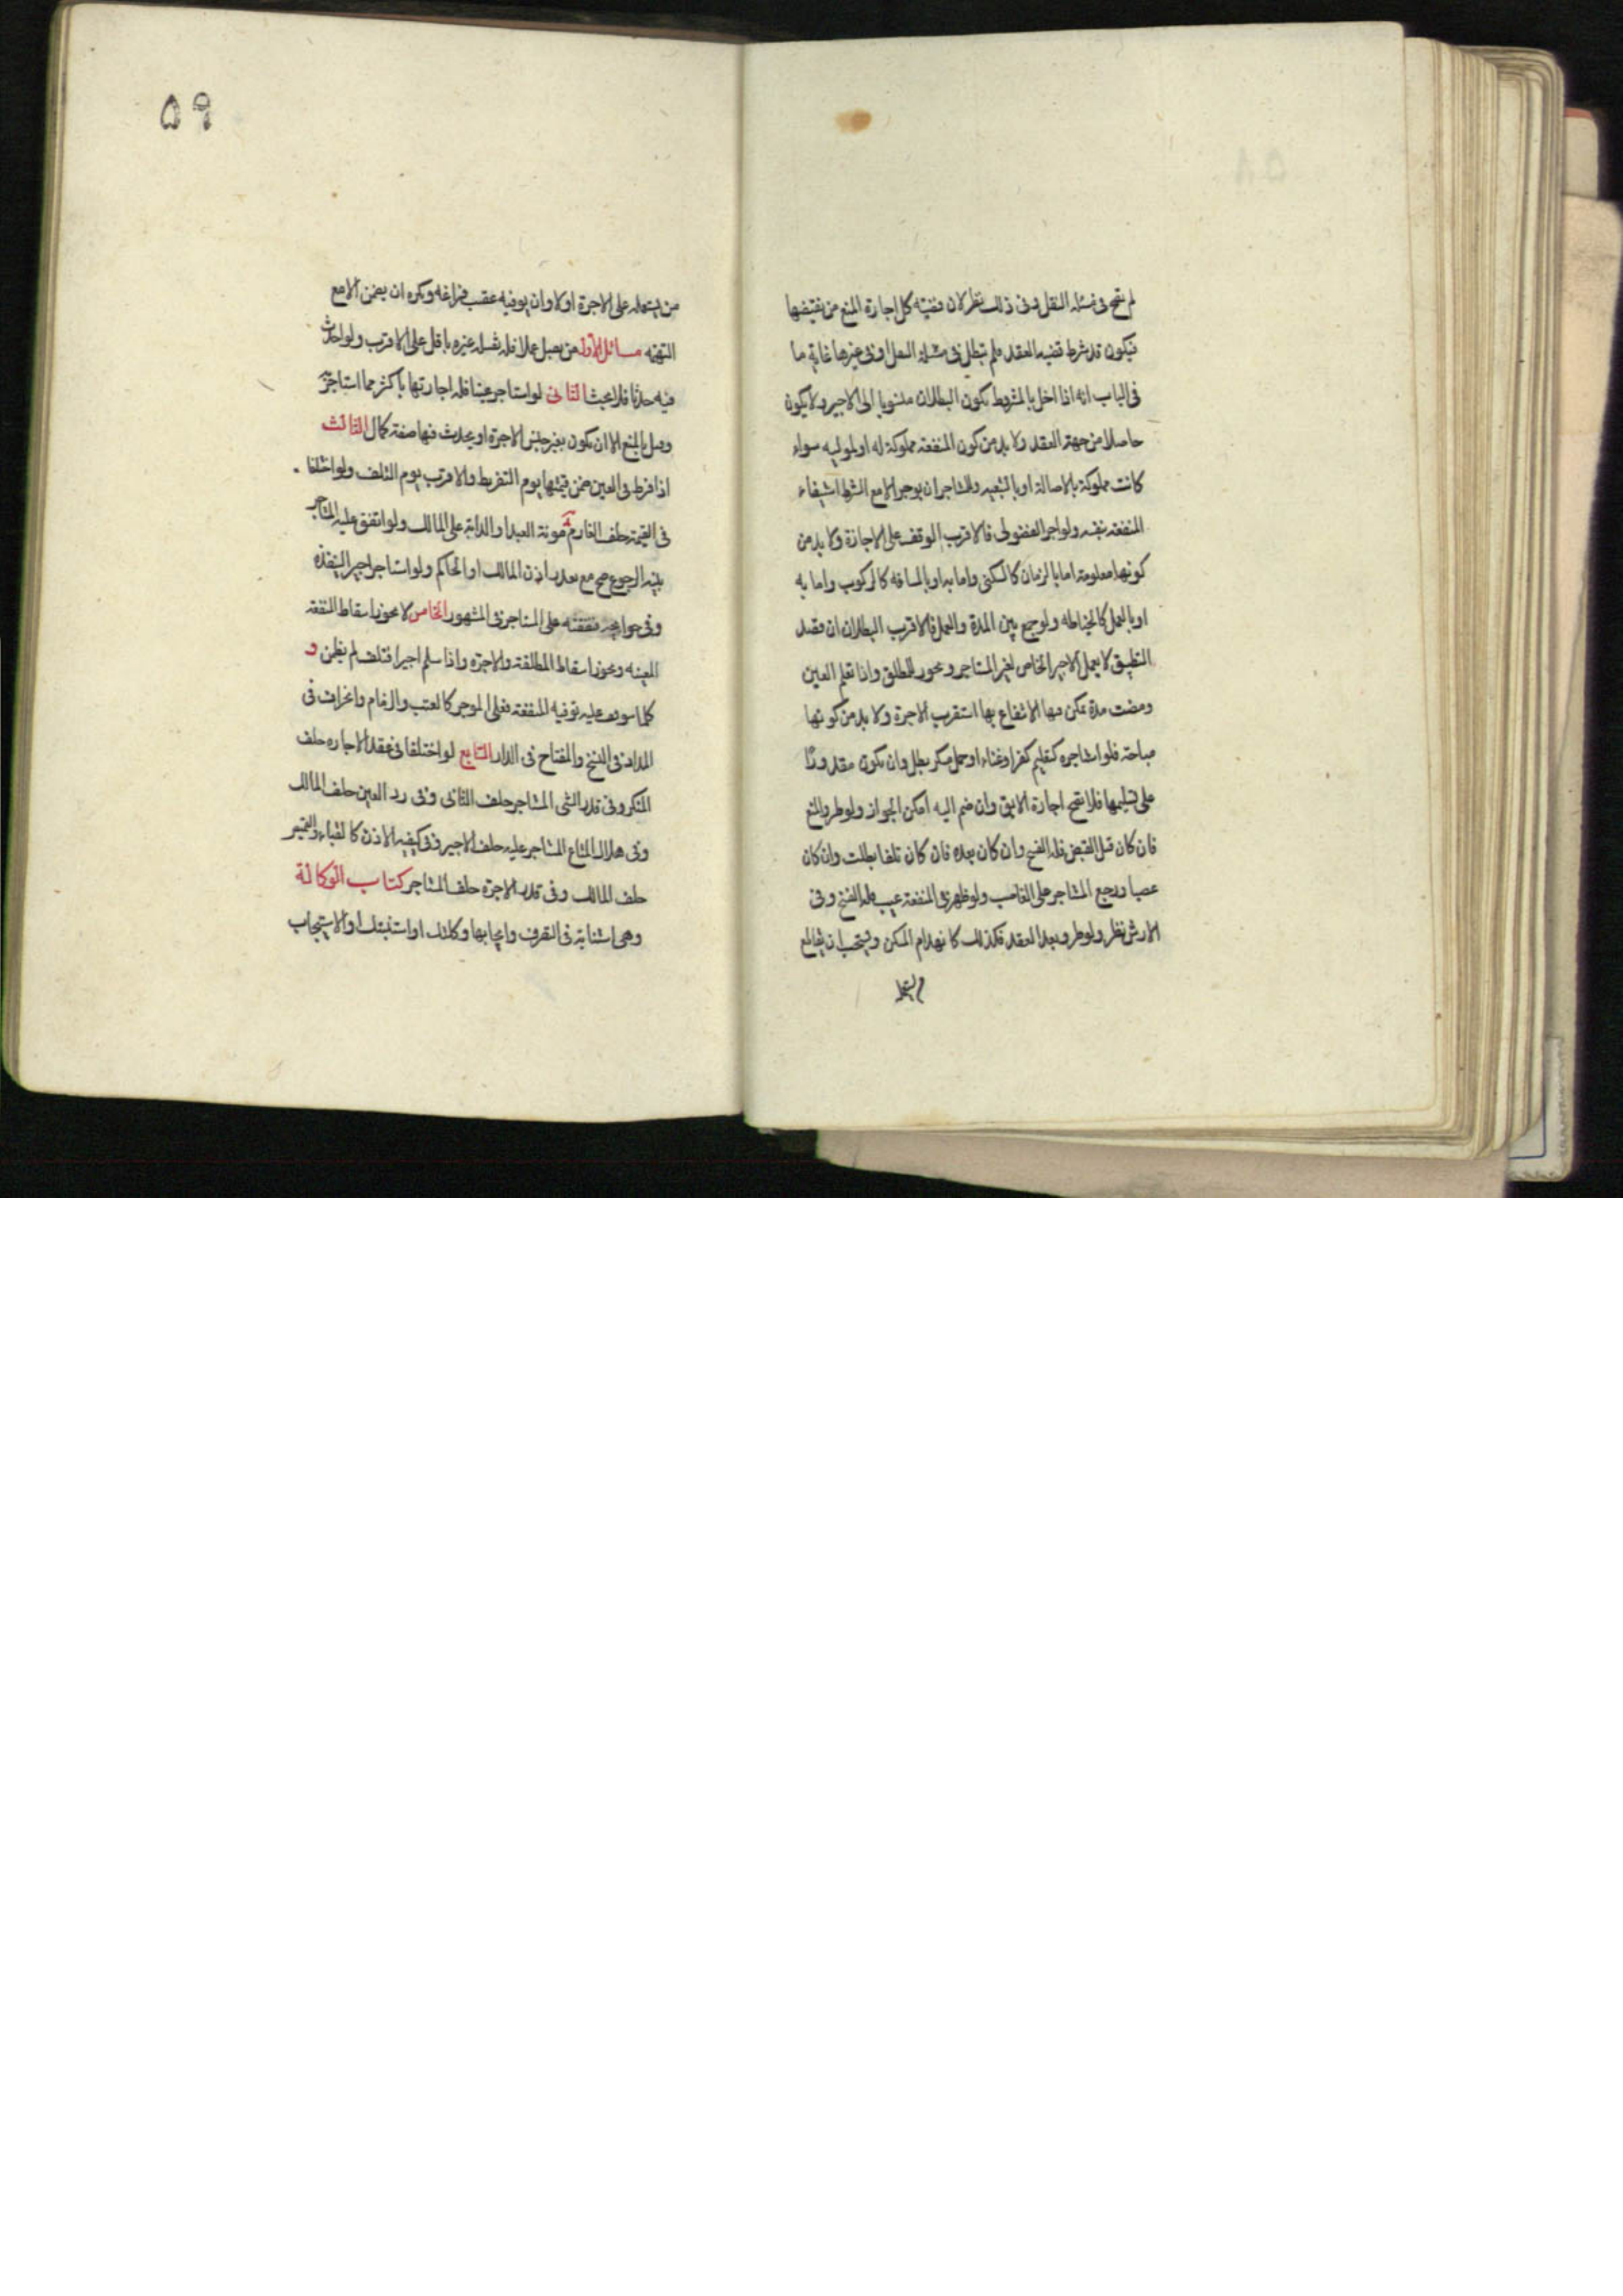 لم تصح فى مسئله النقل وفى ذلك نظر لان قضيته كل اجارة المنع من نقيضها
فيكون قد شرط قضيه العقد فلم تبطل فى مسئلة النقل او فى غيرها غاية ما
فى الباب انه اذا اخل بالمشروط يكون البطلان منسوبا الى الاجير ولا يكون
حاصلا من جهة العقد ولا بد من كون المنفعة مملوكة له او لموليه سواء
كانت مملوكة بالاصالة او بالتبعيه وللمستاجر ان يوجر الا مع الشرط استيفاء
المنفعة بنفسه ولو اجر الفضولى فالاقرب الوقف على الاجازة ولا بد من
كونها معلومة اما بالزمان كالسكنى واما به او بالمسافه كالركوب واما به
او بالعمل كالخياطه ولو جمع بين المدة والعمل فالاقرب البطلان ان قصد
التطبيق لا يعمل الاجير الخاص لغير المستاجر ويجوز للمطلق واذا تسلم العين
ومضت مدة يمكن فيها الانتفاع بها استقرت الاجرة ولا بد من كونها
مباحة فلو استاجره لتعليم كفر او غناء او حمل مسكر بطل وان يكون مقدورًا
على تسليمها فلا تصح اجارة الابق وان ضم اليه امكن الجواز ولو طرء المنع
فان كان قبل القبض فله الفسخ وان كان بعده فان كان تلفا بطلت وان كان
غصبا ورجع المستاجر على الغاصب ولو ظهر فى المنفعة عيب فله الفسخ وفى
الارش نظر ولو طرء بعد العقد فكذلك كانهدام المسكن ويستحب ان يقاطع
من يستعمله على الاجرة اولا وان يوفيه عقيب فراغه ويكره ان يضمن الا مع
التهمه مسائل الاولى من يقبل عملا فله تقبيله غيره باقل على الاقرب ولو احدث
فيه حدثا فلا بحث الثانى لو استاجر عينا فله اجارتها باكثر مما استاجره
وقيل بالمنع الا ان يكون بغير جنس الاجرة او يحدث فيها صفة كمال الثالث
اذا فرط فى العين ضمن قيمتها يوم التفريط والاقرب يوم التلف ولو اختلفا
فى القيمة حلف الغارم مونة العبد او الدابة على المالك ولو انفق عليه المستاجر
بنيه الرجوع صح مع تعذر اذن المالك او الحاكم ولو استاجر اجيرا لينفذه
وفى حوائجه فنفقته على المستاجر فى المشهور الخامس لا يجوز اسقاط المنفعة
المعينه ويجوز اسقاط المطلقة والاجرة واذا سلم اجيرا فتلف لم يضمن و
كلما يتوقف عليه توفيه المنفعة فعلى الموجر كالقتب والزمام والحزام
المداد فى النسخ والمفتاح فى الدار السابع لو اختلفا فى عقد الاجاره حلف
المنكر وفى قدر الشى المستاجر حلف الثانى وفى رد العين حلف المالك
وفى هلاك المتاع المستاجر عليه حلف الاجير وفى كيفيه الاذن كالقباء والقميص
حلف المالك وفى قدر الاجرة حلف المستاجر كتاب الوكالة
وهى استنابة فى التصرف وايجابها وكلتك او استنبتك او الاستيجاب
٥٩